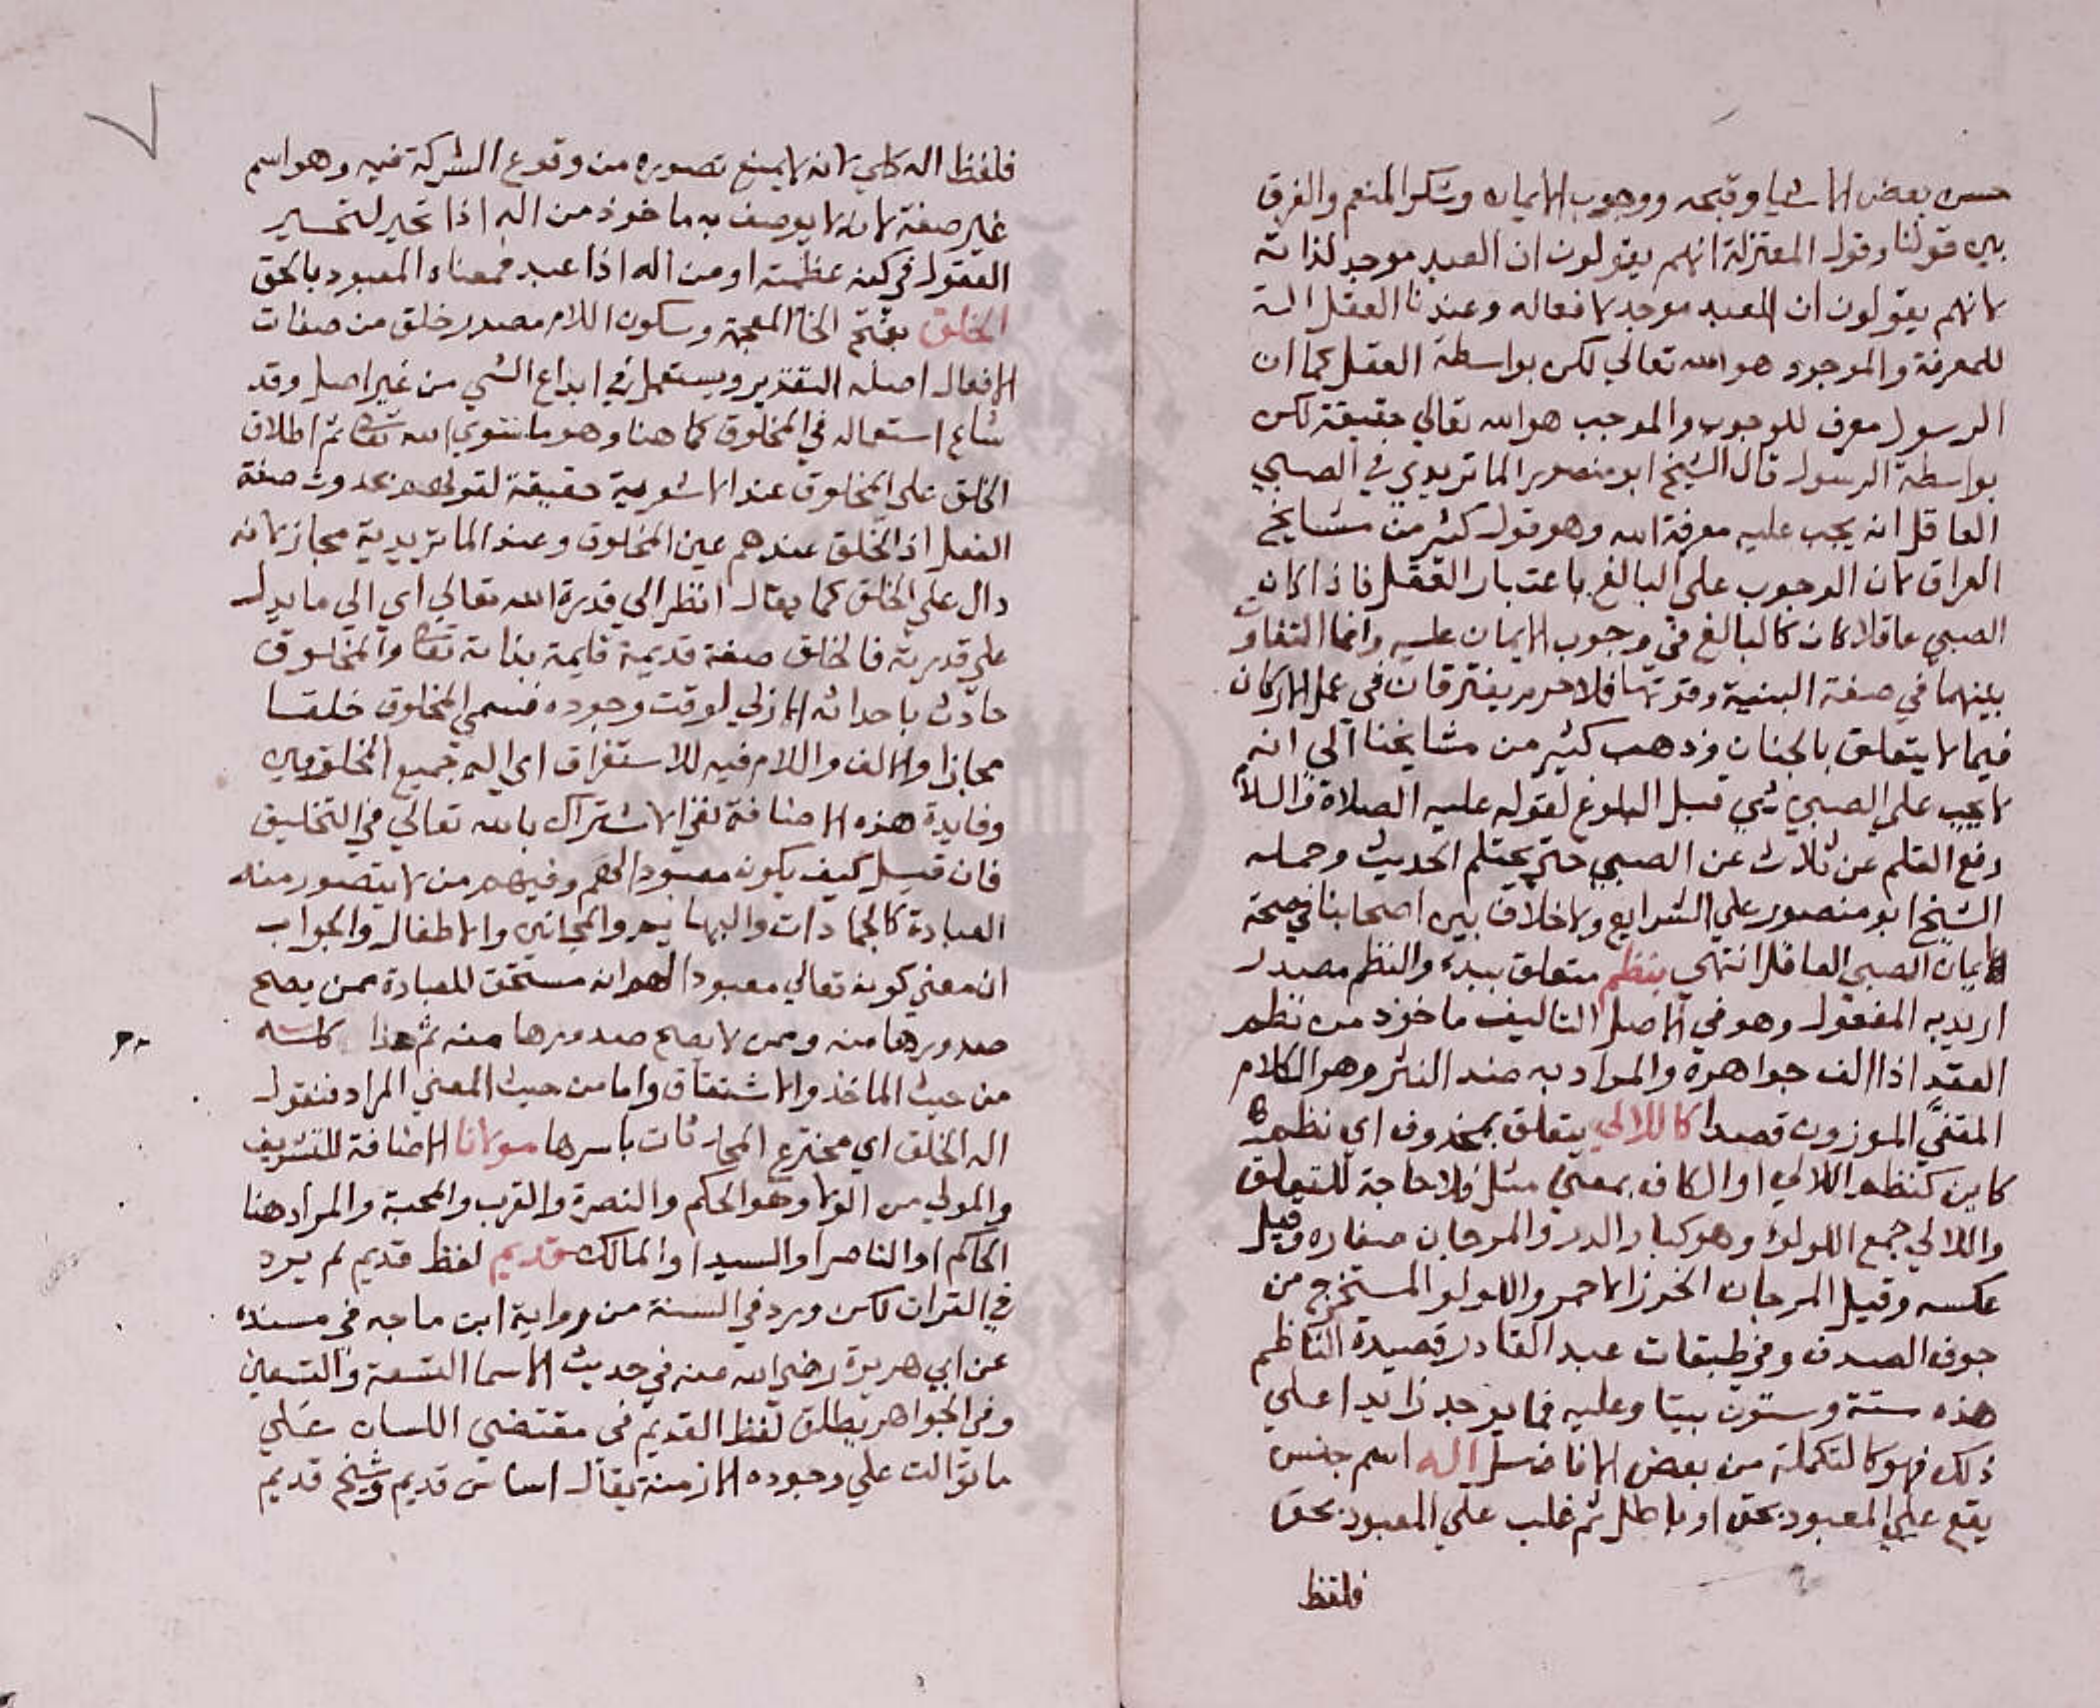 حسن بعض الاشيا وقبحه ووجوب الايمان وشكر المنعم والفرق
بين قولنا وقول المعتزلة انهم يقولون ان العبد موجد لذاته
لانهم يقولون ان العبد موجد لافعاله وعندنا العقل الة
للمعرفة والموجود هو الله تعالي لكن بواسطة العقل كما ان
الرسول معرف للوجوب والموجب هو الله تعالي حقيقة لكن
بواسطة الرسول قال الشيخ ابو منصور الماتريدي في الصبي
العاقل انه يجب عليه معرفة الله وهو قول كثير من مشايخ
العراق لان الوجوب علي البالغ باعتبار العقل فاذا كان
الصبي عاقلا كان كالبالغ في وجوب الايمان عليه وانما التفاوت
بينهما في صفة البنية وقوتها فلا جرم يفترقان في عمل الاركان
فيما لا يتعلق بالجنان وذهب كثير من مشايخنا الي انه
لا يجب علي الصبي شي قبل البلوغ لقوله عليه الصلاة والسلام
رفع القلم عن ثلاث عن الصبي حتي يحتلم الحديث وحمله
الشيخ ابو منصور علي الشرايع ولا خلاف بين اصحابنا في صحة
ايمان الصبي العاقل انتهي بنظم متعلق ببدء والنظم مصدر
اريد به المفعول وهو في الاصل التاليف ماخوذ من نظم
العقد اذا الف جواهره والمراد به ضد النثر وهو الكلام
المقفي الموزون قصدا كاللالي يتعلق بمحذوف اي نظم
كاين كنظم اللالي او الكاف بمعني مثل فلا حاجة للتعلق
واللالي جمع اللولو وهو كبار الدر والمرجان صغاره وقيل
عكسه وقيل المرجان الخرز الاحمر واللولو المستخرج من
جوف الصدف وفي طبقات عبد القادر قصيدة الناظم
هذه ستة وستون بيتا وعليه فما يوجد زايدا علي
ذلك فهو كالتكملة من بعض الافاضل اله اسم جنس
يقع علي المعبود بحق او باطل ثم غلب علي المعبود بحق
فلفظ
فلفظ اله كلي لانه لا يمنع تصوره من وقوع الشركة فيه وهو اسم
غير صفة لانه لا يوصف به ماخوذ من اله اذا تحير لتحير
العقول في كنه عظمته او من اله اذا عبد فمعناه المعبود بالحق
الخلق بفتح الخا المعجمة وسكون اللام مصدر خلق من صفات
الافعال اصله التقدير ويستعمل في ابداع الشي من غير اصل وقد
شاع استعماله في المخلوق كما هنا وهو ما سوي الله تعالى ثم اطلاق
الخلق علي المخلوق عند الاشعرية حقيقة لقولهم بحدوث صفة
الفعل اذ الخلق عندهم عين المخلوق وعند الماتريدية مجاز لانه
دال علي الخلق كما يقال انظر الي قدرة الله تعالي اي الي ما يدل
علي قدرته فالخلق صفة قديمة قايمة بذاته تعالى والمخلوق
حادث باحداثه الازلي لوقت وجوده فسمي المخلوق خلقا
مجازا والالف واللام فيه للاستغراق اي اله جميع المخلوقين
وفايدة هذه الاضافة نفي الاشتراك بالله تعالي في التخليق
فان قيل كيف يكون معبودا لهم وفيهم من لا يتصور منه
العبادة كالجمادات والبهايم والمجانين والاطفال والجواب
ان معني كونه تعالي معبودا لهم انه مستحق للعبادة ممن يصح
صدورها منه وممن لا يصح صدورها منه ثم هذا كله
من حيث الماخذ والاشتقاق واما من حيث المعني المراد فنقول
اله الخلق اي مخترع المحدثات باسرها مولانا الاضافة للتشريف
والمولي من الولا وهو الحكم والنصرة والقرب والمحبة والمراد هنا
الحاكم او الناصر او السيد او المالك قديم لفظ قديم لم يرد
في القران لكن ورد في السنة من رواية ابن ماجه في مسنده
عن ابي هريرة رضي الله عنه في حديث الاسما التسعة والتسعين
وفي الجواهر يطلق لفظ القديم في مقتضي اللسان علي
ما توالت علي وجوده الازمنة يقال اساس قديم وشيخ قديم